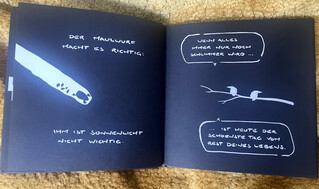 DER MAULWURF
MACHT ES RICHTIG:
IHM IST SONNENLICHT
NICHT WICHTIG.
WENN ALLES
IMMER NUR NOCH
SCHLIMMER WIRD ...
... IST HEUTE DER
SCHOENSTE TAG VOM
REST DEINES LEBENS.